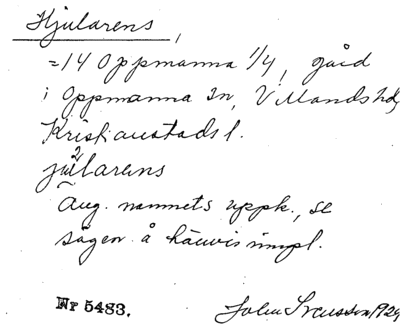 Hjularens,
=14 Oppmanna 1/4, gård
i Oppmanna sn, Villands hd,
Kristianstads l.
ju2larens
Äng. namnets uppk., se
sägen å hänvisningsl.
Nr 5483. John Svensson 1929